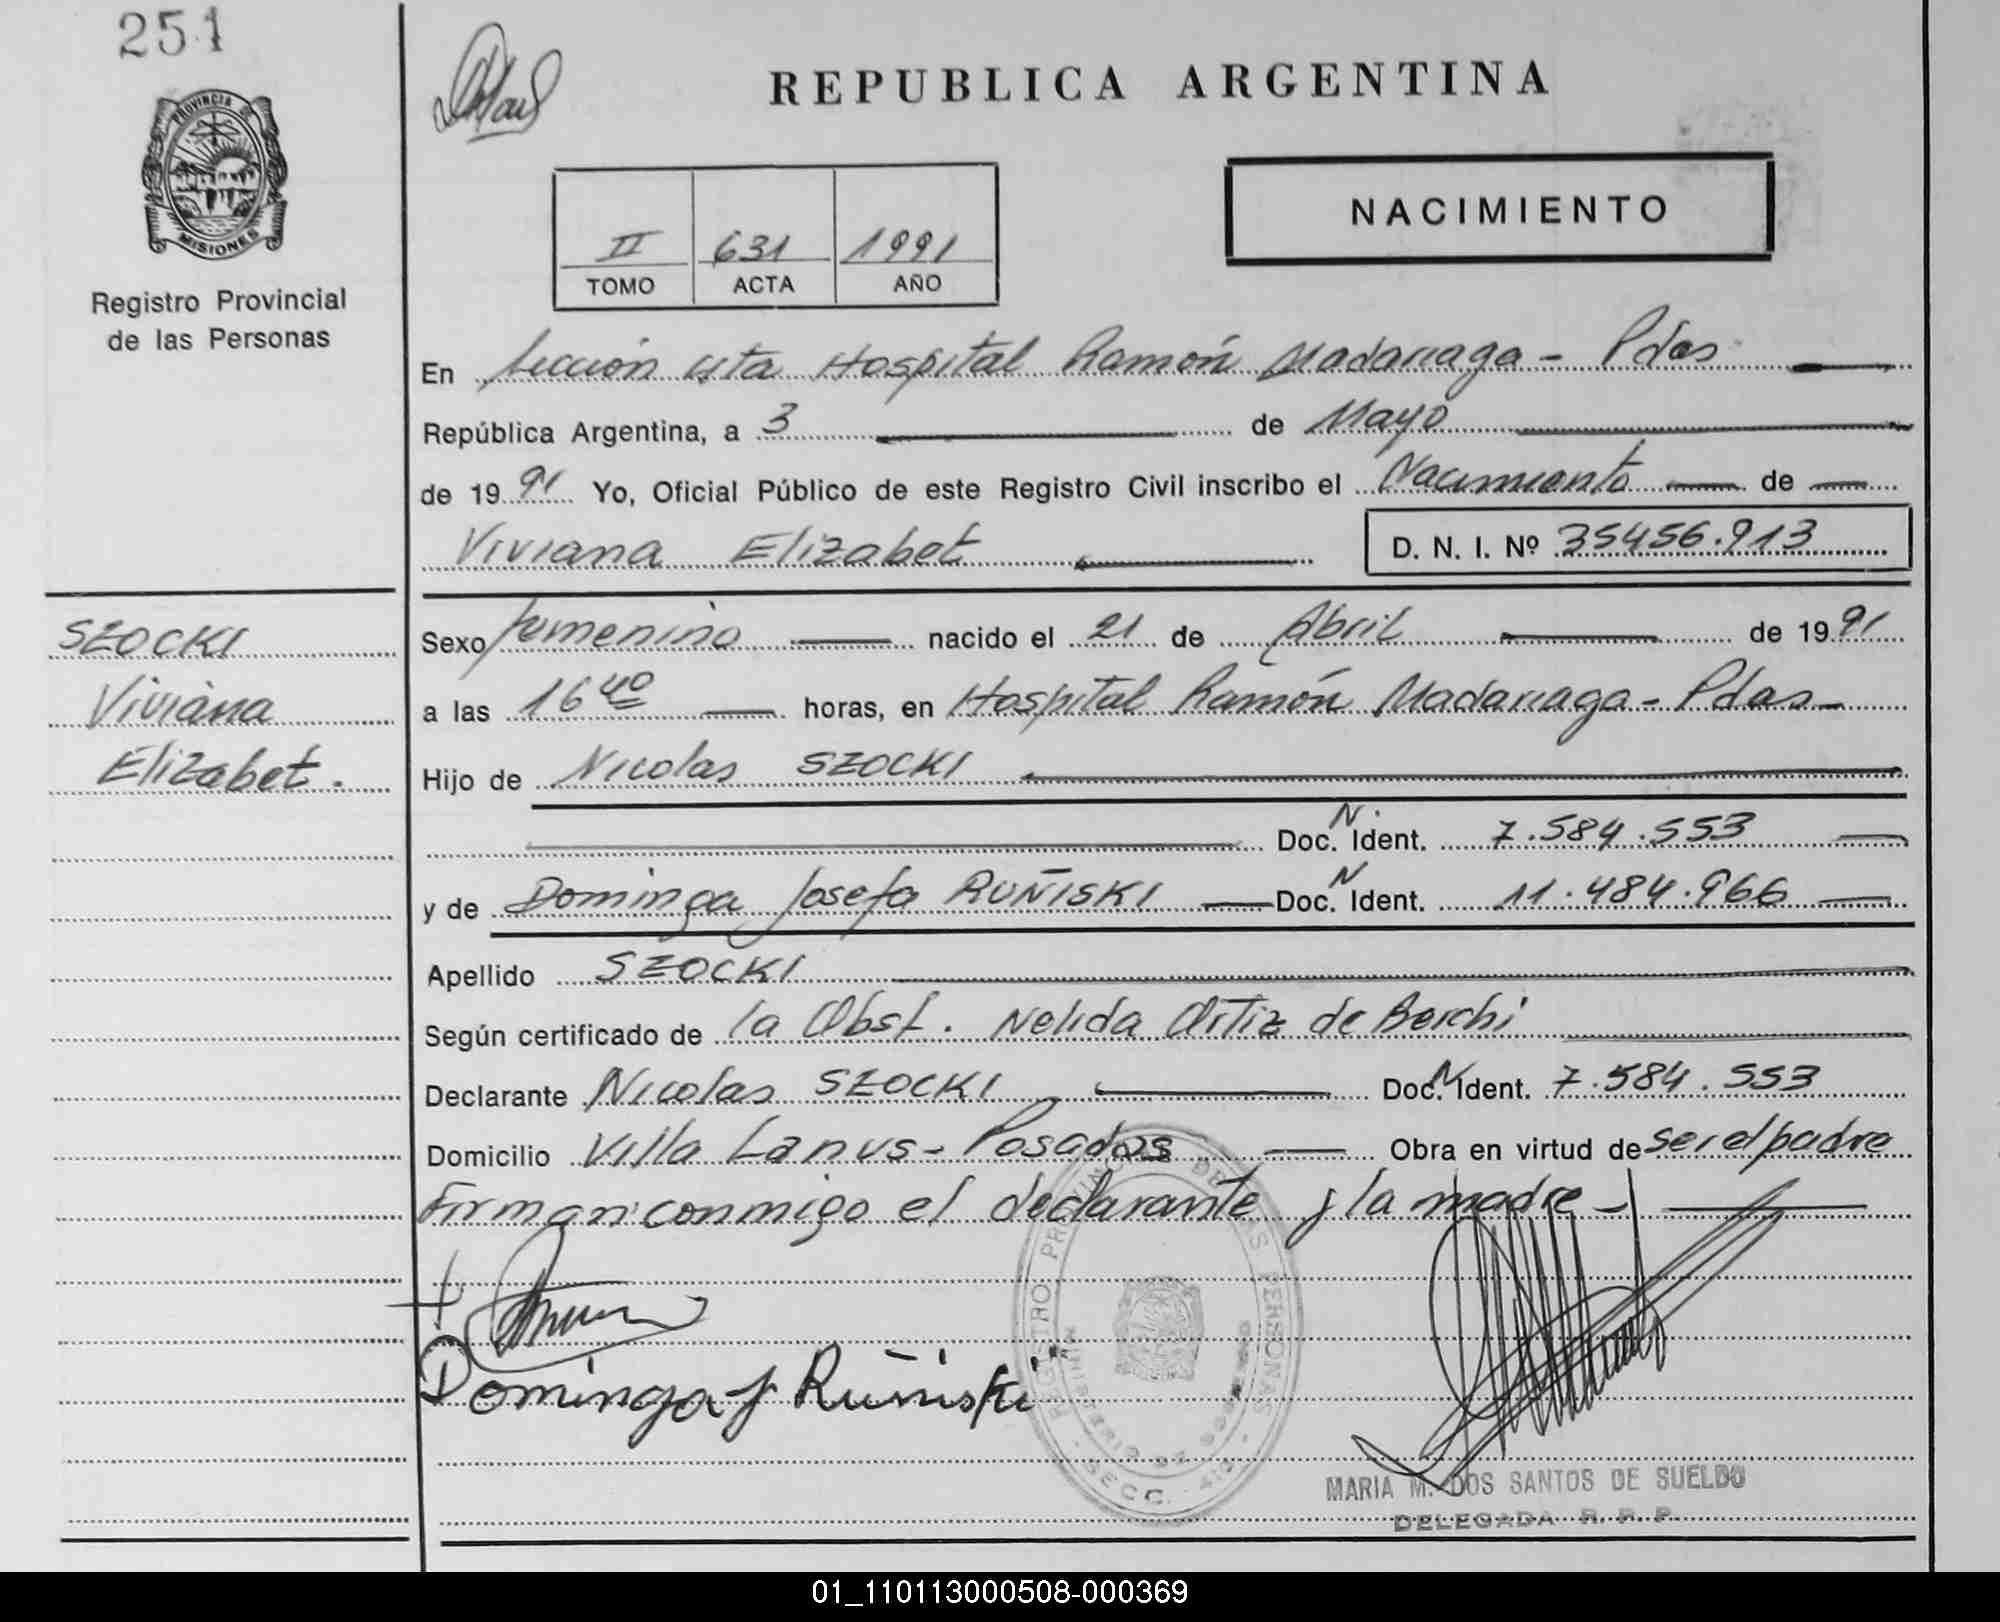 251
PROVINCIA DE
MISIONES
Registro Provincial
de las Personas
SZOCKI
Viviana
Elizabet.
REPUBLICA ARGENTINA
NACIMIENTO
II 631 1991
TOMO ACTA AÑO
En Sección 4ta Hospital Ramón Madariaga - Pdas
República Argentina, a 3 de Mayo
de 1991 Yo, Oficial Público de este Registro Civil inscribo el Nacimiento de
Viviana Elizabet D. N. I. Nº 35456.913
Sexo femenino nacido el 21 de Abril de 1991
a las 16 40 horas, en Hospital Ramón Madariaga - Pdas
Hijo de Nicolas SZOCKI
Doc. N. Ident. 7.584.553
y de Dominga Josefa RUÑISKI Doc. N Ident. 11.484.966
Apellido SZOCKI
Según certificado de la Obst. Nelida Ortiz de Berchi
Declarante Nicolas SZOCKI Doc. N Ident. 7.584.553
Domicilio Villa Lanus - Posadas Obra en virtud de ser el padre
Firman conmigo el declarante y la madre -
Dominga J Ruñiski
REGISTRO PROVINCIAL DE LAS PERSONAS
SECC. 4ta
MARIA M. DOS SANTOS DE SUELDO
DELEGADA R. P. P.
01_110113000508-000369